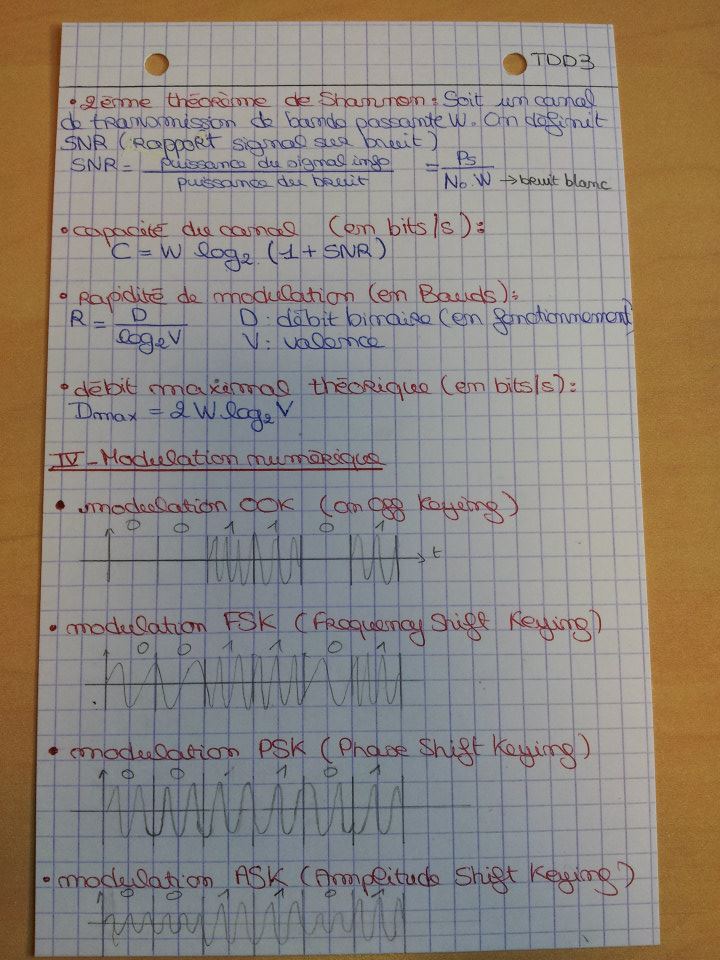 TDD3
• 2ème théorème de Shannon : Soit un canal
de transmission de bande passante W. On définit
SNR (Rapport signal sur bruit)
SNR = puissance du signal info / puissance du bruit = Ps / No.W → bruit blanc
• capacité du canal (en bits/s) :
C = W log2 (1 + SNR)
• Rapidité de modulation (en Bauds) :
R = D / log2 V D : débit binaire (en fonctionnement)
V : valence
• débit maximal théorique (en bits/s) :
Dmax = 2 W log2 V
IV - Modulation numérique
• modulation OOK (on off Keying)
0 0 1 1 0 1
t
• modulation FSK (Frequency Shift Keying)
0 0 1 1 0 1
• modulation PSK (Phase Shift Keying)
0 0 1 1 0 1
• modulation ASK (Amplitude Shift Keying)
0 0 1 1 0 1